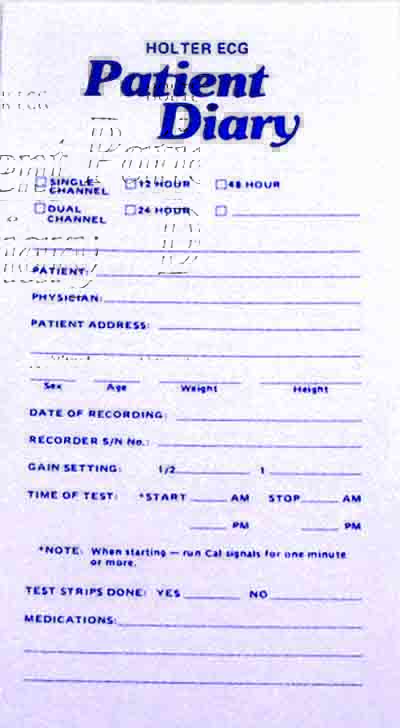 HOLTER ECG
Patient
Diary
SINGLE CHANNEL 12 HOUR 48 HOUR
DUAL CHANNEL 24 HOUR
PATIENT:
PHYSICIAN:
PATIENT ADDRESS:
Sex Age Weight Height
DATE OF RECORDING:
RECORDER S/N No.:
GAIN SETTING: 1/2 1
TIME OF TEST: *START AM STOP AM
PM PM
*NOTE: When starting — run Cal signals for one minute
or more.
TEST STRIPS DONE: YES NO
MEDICATIONS: